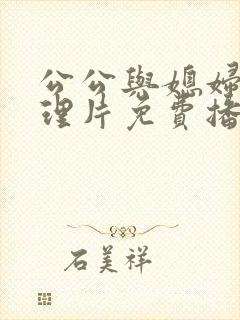 公公與媳婦
理片免費播
石美祥